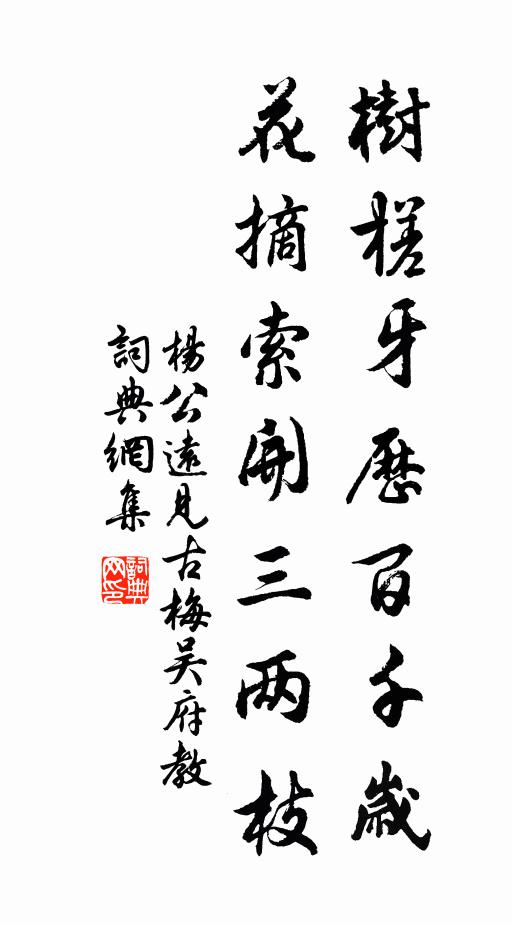 樹槎牙歷百千歲
花摘索開三两枝
楊公遠見古梅吴府教
詞典網集
詞典
网印